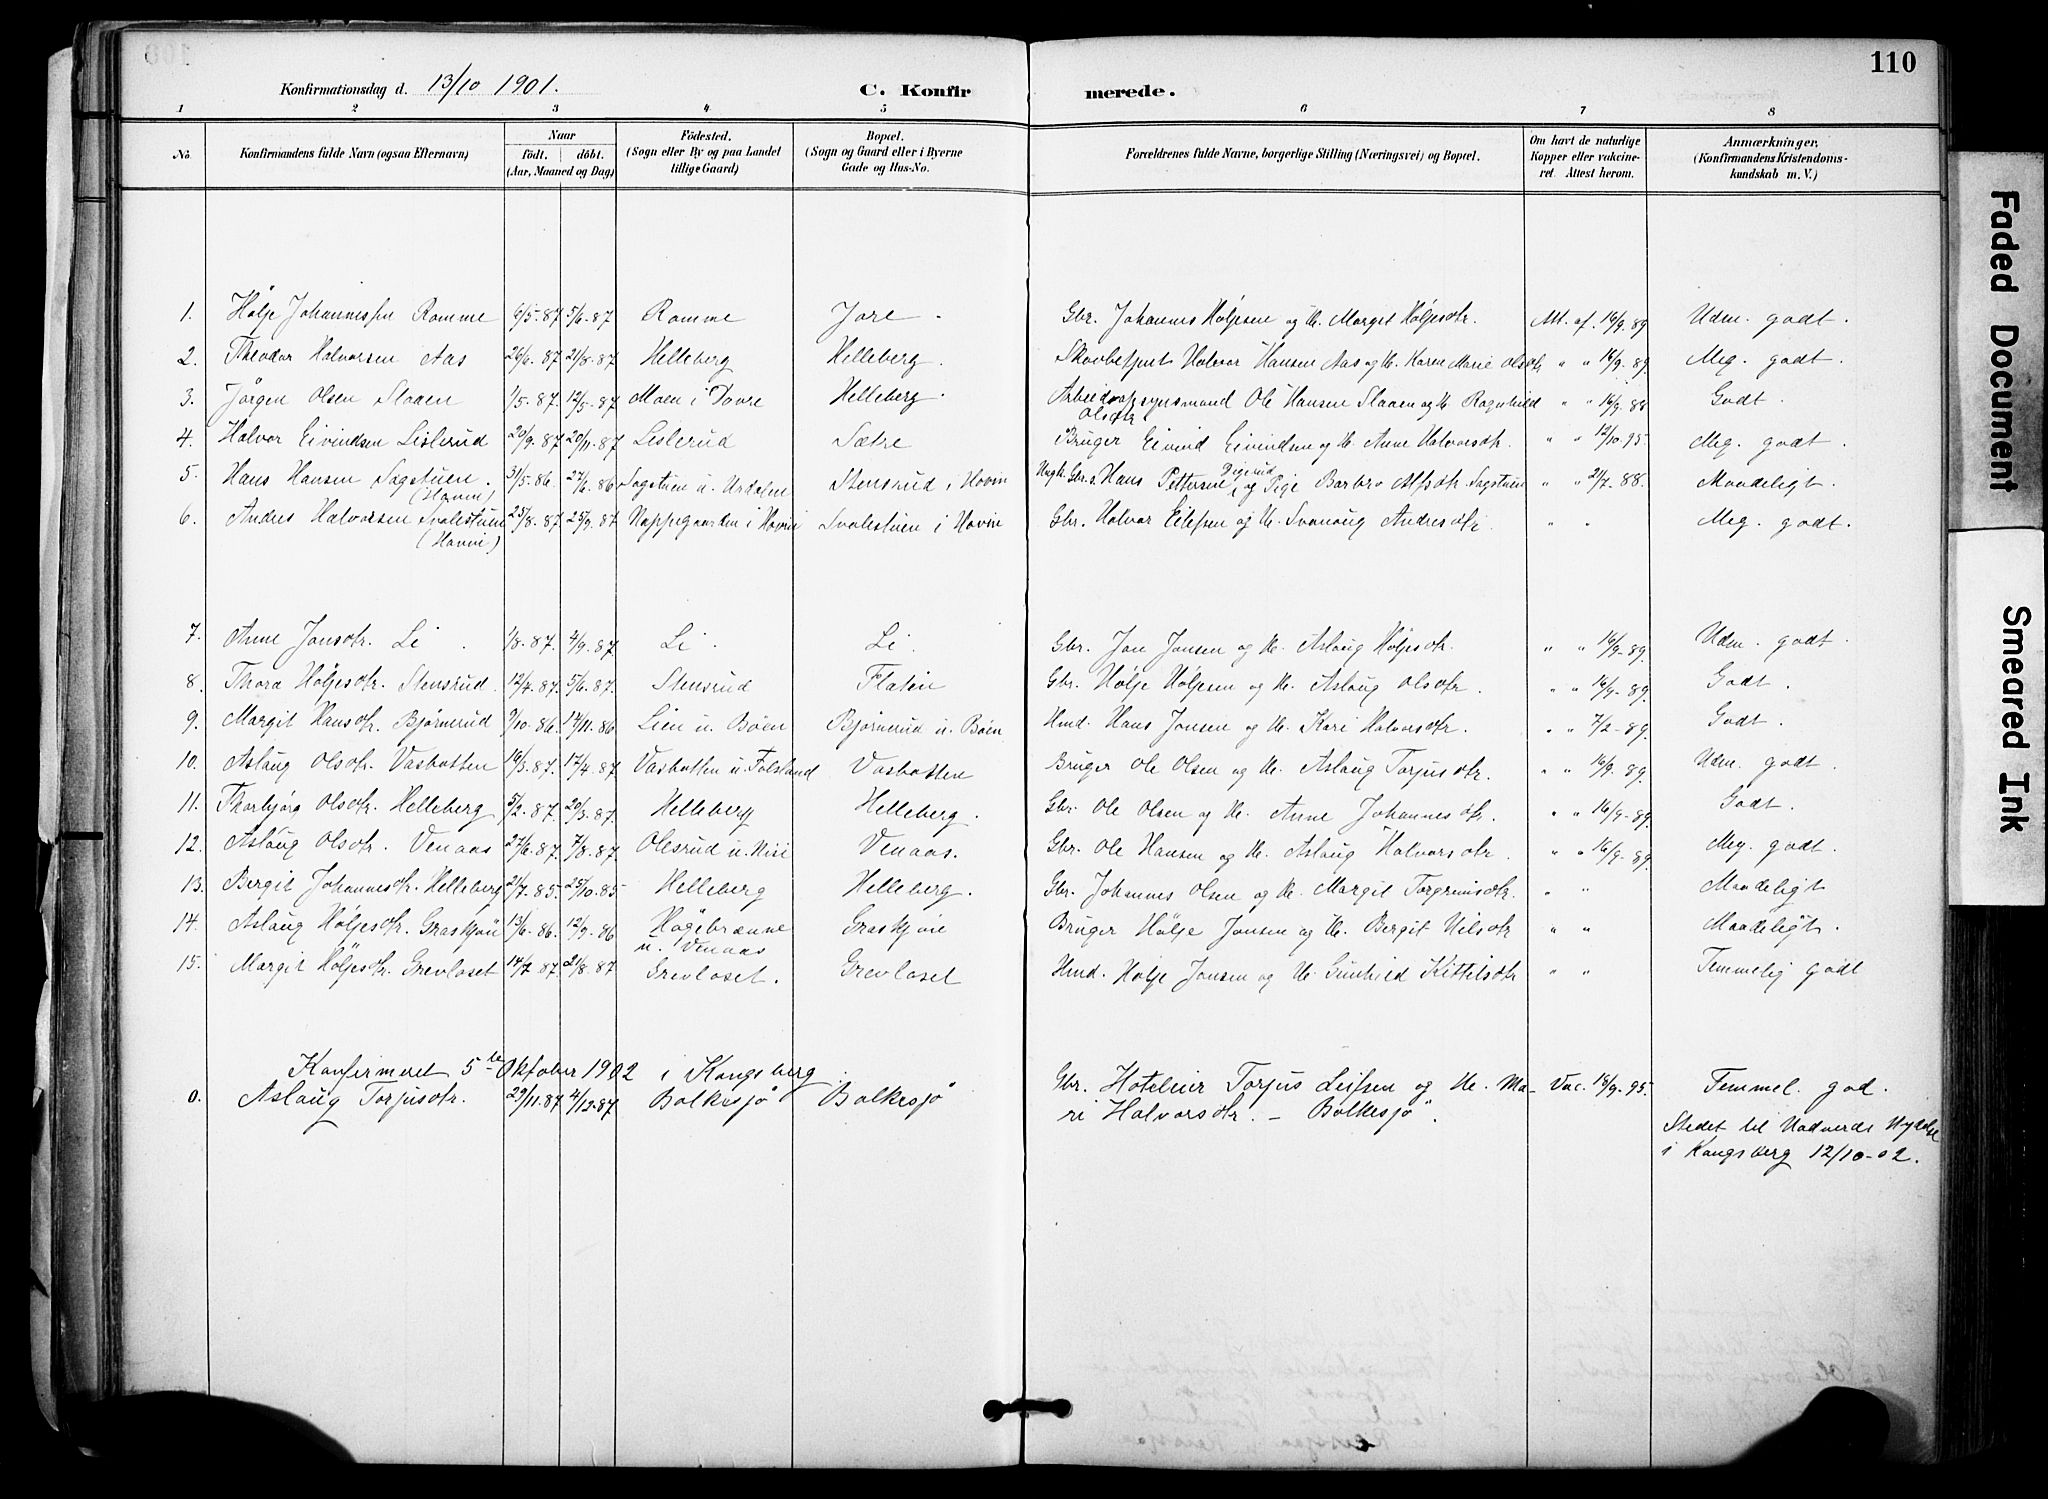 110
Konfirmationsdag d. 13/10 1901.
C. Konfirmerede.
1 2 3 4 5 6 7 8
No. Konfirmandens fulde Navn (ogsaa Efternavn) Naar födt. döbt. (Aar, Maaned og Dag) Födested. (Sogn eller By og paa Landet tillige Gaard) Bopæl. (Sogn og Gaard eller i Byerne Gade og Hus-No. Forældrenes fulde Navne, borgerlige Stilling (Næringsvei) og Bopæl. Om havt de naturlige Kopper eller vakcineret. Attest herom. Anmærkninger. (Konfirmandens Kristendomskundskab m. V.)
1. Hølje Johannessen Romme 6/5-87 5/6-87 Romme Jore. Gbr. Johannes Høljesen og H. Margit Høljesdtr. Att. af. 16/9.89 Udm. godt.
2. Theodor Halvorsen Aas 26/6.87 21/8-87 Helleberg Helleberg. Skovbetjent Halvor Hansen Aas og H. Karen Marie Olsdtr " " 16/9.89 Meg. godt.
3. Jørgen Olsen Slaaen 1/5-87. 12/5-87 Moen i Dovre Helleberg. Arbeidsopsynsmand Ole Hansen Slaaen og H. Ragnhild Olsdtr " " 16/9.88 Godt.
4. Halvor Eivindsen Lislerud 20/9.87 20/11-87 Lislerud Sætre Bruger Eivind Eivindsen og H. Anne Halvorsdtr. " " 12/10.95 Meg. godt.
5. Hans Hansen Sagstuen. (Hovin) 31/5-86. 27/6.86 Sagstuen u. Urdalen Stensrud i Hovin Ungk. Gbr.s. Hans Pettersen Digerud og Pige Barbro Alfsdtr. Sagstuen " " 21/7.88. Maadeligt.
6. Andres Halvorsen Svalestuen (Hovin) 23/8.87 25/9.87 Nappegaarden i Hovin Svalestuen i Hovin Gbr. Halvor Eilefsen og H. Svanaug Andresdtr. " " Meg. godt.
7. Anne Jonsdtr. Li 1/8-87. 4/9.87 Li. Li. Gbr. Jon Jonsen og H. Aslaug Høljesdtr. " " 16/9-89. Udm. godt.
8. Thora Høljesdtr. Stensrud. 12/4.87. 5/6.87. Stensrud Flatin Gbr. Hølje Høljesen og H. Aslaug Olsdtr. " " 16/9-89. Godt.
9. Margit Hansdtr. Bjørnerud 9/10.86. 14/11.86 Lien u. Bøen Bjørnerud u. Bøen Hmd. Hans Jonsen og H. Kari Halvorsdtr. " " 7/2-89. Godt.
10. Aslaug Olsdtr. Vasbotten 16/3.87. 17/4.87 Vasbotten u. Folseland Vasbotten Bruger Ole Olsen og H. Aslaug Torjusdtr. " " 16/9.89. Udm. godt.
11. Thorbjørg Olsdtr. Helleberg 5/2.87. 20/3.87 Helleberg Helleberg. Gbr. Ole Olsen og H. Anne Johannesdtr. " " 16/9-89. Godt.
12. Aslaug Olsdtr. Venaas 27/6.87. 7/8.87. Olesrud u. Nisi Venaas. Gbr. Ole Hansen og H. Aslaug Halvorsdtr. " " 16/9-89. Meg. godt.
13. Bergit Johannesdtr. Helleberg 21/7.85. 25/10.85 Helleberg Helleberg. Gbr. Johannes Olsen og H. Margit Torgrimsdtr. " " Maadeligt
14. Aslaug Høljesdtr. Graskjøn 13/6-86. 12/9.86 Høgebrænne u. Venaas Graskjøn Bruger Hølje Jonsen og H. Bergit Nilsdtr " " Maadeligt.
15. Margit Høljesdtr. Grevloset 14/7.87 21/8.87 Grevloset. Grevloset Hmd. Hølje Jonsen og H. Gunhild Kittilsdtr " " Temmelig godt
Konfirmeret 5te Oktober 1902 i Kongsberg.
0. Aslaug Torjusdtr. 29/11.87 4/12.87 Bolkesjø Bolkesjø Gbr. Hotelleier Torjus Leifsen og H. Ma- Vac. 18/9.95. Temmel. god.
ri Halvorsdtr. - Bolkesjø".
Stedet til Nadverds Nydelse
i Kongsberg 12/10-02.
Faded Document
Smeared Ink